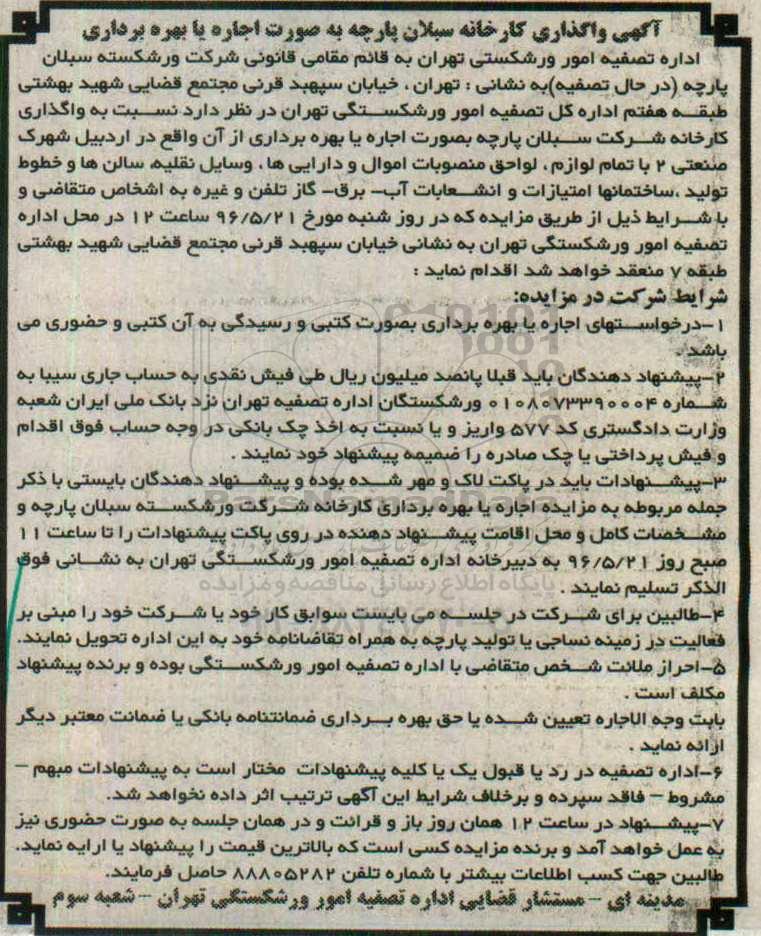 آگهی واگذاری کارخانه سبلان پارچه به صورت اجاره یا بهره برداری
اداره تصفیه امور ورشکستی تهران به قائم مقامی قانونی شرکت ورشکسته سبلان
پارچه (در حال تصفیه)به نشانی : تهران ، خیابان سپهبد قرنی مجتمع قضایی شهید بهشتی
طبقه هفتم اداره کل تصفیه امور ورشکستگی تهران در نظر دارد نسبت به واگذاری
کارخانه شرکت سبلان پارچه بصورت اجاره یا بهره برداری از آن واقع در اردبیل شهرک
صنعتی ۲ با تمام لوازم ، لواحق منصوبات اموال و دارایی ها ، وسایل نقلیه، سالن ها و خطوط
تولید ،ساختمانها امتیازات و انشعابات آب- برق- گاز تلفن و غیره به اشخاص متقاضی و
با شرایط ذیل از طریق مزایده که در روز شنبه مورخ ۹۶/۵/۲۱ ساعت ۱۲ در محل اداره
تصفیه امور ورشکستگی تهران به نشانی خیابان سپهبد قرنی مجتمع قضایی شهید بهشتی
طبقه ۷ منعقد خواهد شد اقدام نماید :
شرایط شرکت در مزایده:
۱-درخواستهای اجاره یا بهره برداری بصورت کتبی و رسیدگی به آن کتبی و حضوری می
باشد .
۲-پیشنهاد دهندگان باید قبلا پانصد میلیون ریال طی فیش نقدی به حساب جاری سیبا به
شماره ۰۱۰۸۰۷۳۳۹۰۰۰۴ ورشکستگان اداره تصفیه تهران نزد بانک ملی ایران شعبه
وزارت دادگستری کد ۵۷۷ واریز و یا نسبت به اخذ چک بانکی در وجه حساب فوق اقدام
و فیش پرداختی یا چک صادره را ضمیمه پیشنهاد خود نمایند .
۳-پیشنهادات باید در پاکت لاک و مهر شده بوده و پیشنهاد دهندگان بایستی با ذکر
جمله مربوطه به مزایده اجاره یا بهره برداری کارخانه شرکت ورشکسته سبلان پارچه و
مشخصات کامل و محل اقامت پیشنهاد دهنده در روی پاکت پیشنهادات را تا ساعت ۱۱
صبح روز ۹۶/۵/۲۱ به دبیرخانه اداره تصفیه امور ورشکستگی تهران به نشانی فوق
الذکر تسلیم نمایند .
۴-طالبین برای شرکت در جلسه می بایست سوابق کار خود یا شرکت خود را مبنی بر
فعالیت در زمینه نساجی یا تولید پارچه به همراه تقاضانامه خود به این اداره تحویل نمایند.
۵-احراز ملائت شخص متقاضی با اداره تصفیه امور ورشکستگی بوده و برنده پیشنهاد
مکلف است .
بابت وجه الاجاره تعیین شده یا حق بهره برداری ضمانتنامه بانکی یا ضمانت معتبر دیگر
ارائه نماید .
۶-اداره تصفیه در رد یا قبول یک یا کلیه پیشنهادات مختار است به پیشنهادات مبهم -
مشروط - فاقد سپرده و برخلاف شرایط این آگهی ترتیب اثر داده نخواهد شد.
۷-پیشنهاد در ساعت ۱۲ همان روز باز و قرائت و در همان جلسه به صورت حضوری نیز
به عمل خواهد آمد و برنده مزایده کسی است که بالاترین قیمت را پیشنهاد یا ارایه نماید.
طالبین جهت کسب اطلاعات بیشتر با شماره تلفن ۸۸۸۰۵۲۸۲ حاصل فرمایند.
مدینه ای - مستشار قضایی اداره تصفیه امور ورشکستگی تهران - شعبه سوم
ParsNamadData
پایگاه اطلاع رسانی مناقصه و مزایده